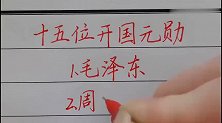 十五位开国元勋
1.毛泽东
2.周